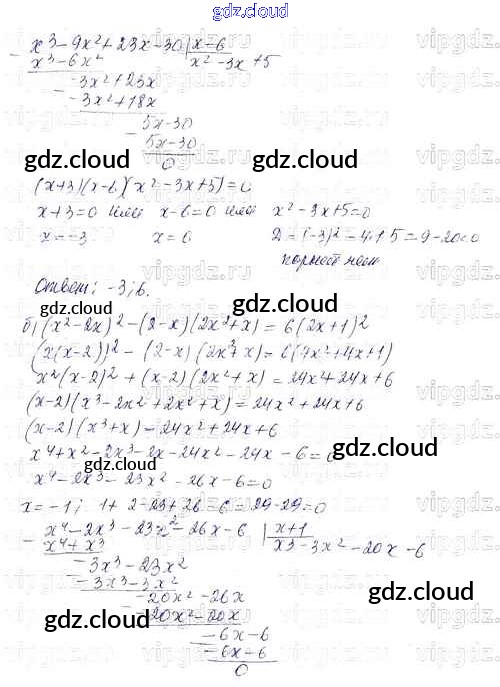 gdz.cloud
x³ - 9x² + 23x - 30 | x - 6
x³ - 6x² | x² - 3x + 5
-3x² + 23x
-3x² + 18x
5x - 30
5x - 30
0
gdz.cloud gdz.cloud
(x+3)(x-6)(x² - 3x + 5) = 0
x+3=0 или x-6=0 или x² - 3x + 5 = 0
x = -3 x = 6 D = (-3)² - 4·1·5 = 9 - 20 < 0
gdz.cloud
корней нет
Ответ: -3; 6.
gdz.cloud
б) (x² - 2x)² - (2-x)(2x² + x) = 6(2x+1)²
(x(x-2))² - (2-x)(2x² + x) = 6(4x² + 4x + 1)
x²(x-2)² + (x-2)(2x² + x) = 24x² + 24x + 6
(x-2)(x³ - 2x² + 2x² + x) = 24x² + 24x + 6
(x-2)(x³ + x) = 24x² + 24x + 6
x⁴ + x² - 2x³ - 2x - 24x² - 24x - 6 = 0
gdz.cloud gdz.cloud
x⁴ - 2x³ - 23x² - 26x - 6 = 0
x = -1; 1 + 2 - 23 + 26 - 6 = 29 - 29 = 0
x⁴ - 2x³ - 23x² - 26x - 6 | x + 1
x⁴ + x³ | x³ - 3x² - 20x - 6
-3x³ - 23x²
-3x³ - 3x²
gdz.cloud
-20x² - 26x
-20x² - 20x
gdz.cloud
-6x - 6
-6x - 6
0